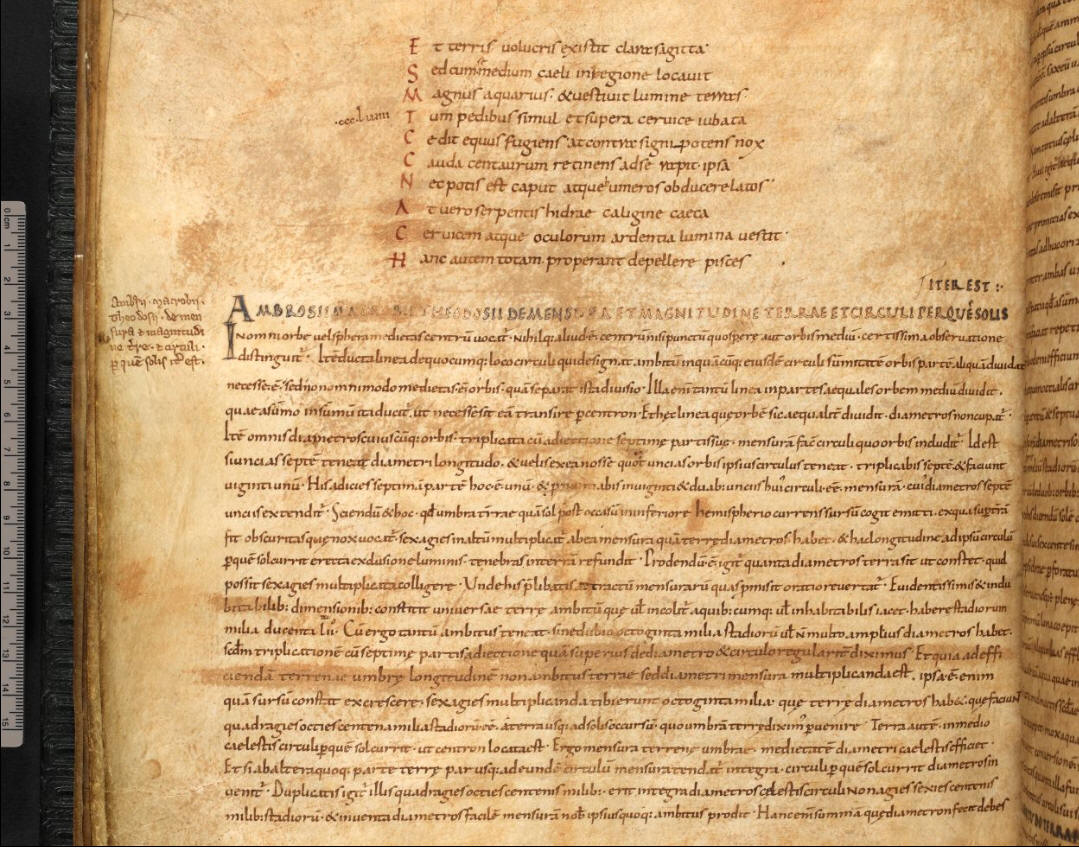 Et terris volucris existit clara sagitta
Sed cum medium caeli in regione locavit
Magnus aquarius · & vestivit lumine terras
Tum pedibus simul et supera cervice iubata
Cedit equus fugiens · at contra signi potens nox
Cauda centaurum retinens ad se rapit ipsa
Nec potis est caput atque umeros obducere latos
At vero serpentis hidrae caligine caeca
Cervicem atque oculorum ardentia lumina vestit
Hanc autem totam properant depellere pisces
ITER EST
AMBROSII MACROBII THEODOSII DE MENSURA ET MAGNITUDINE TERRAE ET CIRCULI PER QUĒ SOLIS
Ambrosii · macrobii ·
theodosii · de men
sura & magnitudi
ne & circuli ·
p quē solis est ·
In omni orbe vel sphera medietas centrū vocat · Nihilq; aliud ē centrū nisi punctū quo spere aut orbis mediū · certissima observatione
distinguit · Itē ducta linea de quocumq; loco circuli qui designat ambitū in quacūq; eiusdē circuli sūmitate orbis partē aliquā dividat
necesse ē · sed non omnimodo medietas ē orbis · quā separat ista divisio · Illa enī tantū linea in partes aequales orbem mediū dividit ·
quae a sūmo in sumū ita ducit · ut necesse sit eā transire p centron · Et hec linea que orbē sic aequalit dividit · diametros noncupat ·
Itē omnis diametros cuiuscūq; orbis · triplicata cū adiectione septime partis sue · mensurā circuli quo orbis includit · Id est
si uncias septē teneat diametri longitudo · & velis ex ea nosse quot uncias orbis ipsius circulus teneat · triplicabis septē & faciunt
viginti unū · His adicies septimā partē hoc ē unū · & in viginti & duab; unciis circuli mensurā · cui diametros septē
unciis extendit · Sciendū & hoc · umbra terrae quā sol post occasū in inferiore hemispherio currens sursū cogit emitti · ex qua sup terrā
fit obscuritas que nox vocat · sexagies in altū multiplicat ab ea mensura quā terre diametros habet · & hac longitudine ad ipsū circulū
p quē sol currit erecta exclusione luminis · tenebras in terrā refundit · Prodendū ē igit quanta diametros terra sit ut constet · quid
possit sexagies multiplicata colligere · Unde his plibatis ad tractū mensurarū quas pmisit oratio revertat · Evidentissimis & indu
bitabilib; dimensionib; constitit universae terre ambitū que incolit a quib; cumq; inhabitabilis iacet · habere stadiorum
milia ducenta · Cū ergo tantū ambitus teneat · sine dubio octoginta milia stadiorū non multo amplius diametros habet ·
scdm triplicationē cū septime partis adiectione quā superius de diametro & circulo regularit diximus · Et quia ad effi
ciendā terrenae umbre longitudinē non ambitus terrae sed diametri mensura multiplicanda est · ipsa ē enim
quā sursū constat excrescere · sexagies multiplicanda tibi erunt octoginta milia · que terre diametros habet · que faciunt
quadragies octies centena milia stadiorū ēē · a terra usq; ad solis cursū · quo umbrā terre dixim pvenire · Terra autē in medio
caelestis circuli p quē sol currit · ut centron locata est · Ergo mensura terrene umbrae · medietatē diametri caelestis efficiet ·
Et si ab altera quoq; parte terre par usq; ad eundē circulū mensura tendat integra · circuli p quē sol currit diametros in
venit · Duplicatis igit illis quadragies octies centenis milib; · erit integra diametros caelestis circuli Nonagies sexies centenis
milib; stadiorū · & inventa diametros facilē mensurā nobis ipsius quoq; ambitus prodit · Hanc em summā que diametron fecit debes